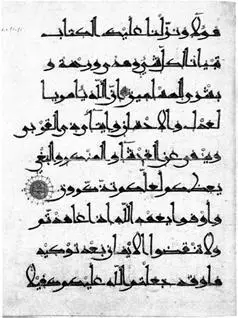 هؤلاء ونزلنا عليك الكتاب
تبيانا لكل شيء وهدى ورحمة و
بشرى للمسلمين إن الله يأمر با
لعدل والإحسان وإيتاء ذي القربى
وينهى عن الفحشاء والمنكر والبغي
يعظكم لعلكم تذكرون
وأوفوا بعهد الله إذا عاهدتم
ولا تنقضوا الأيمان بعد توكيد
ها وقد جعلتم الله عليكم كفيلا